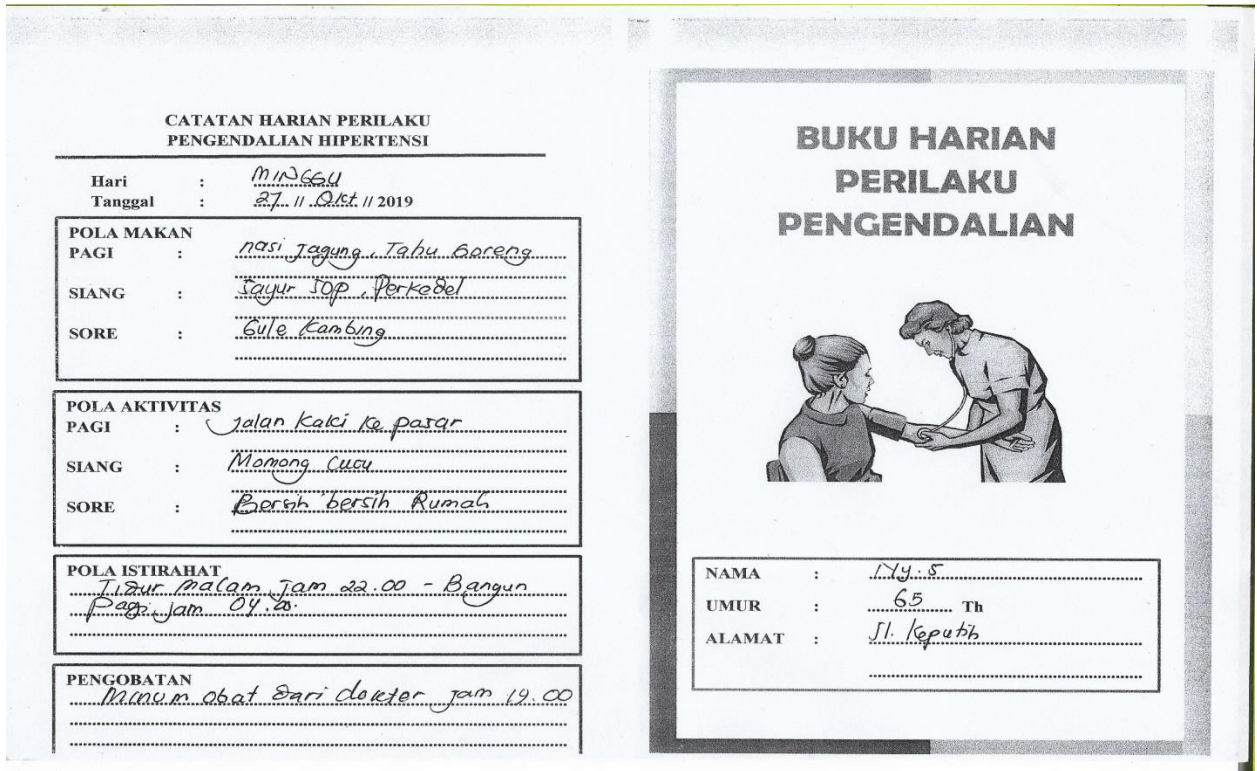 CATATAN HARIAN PERILAKU
PENGENDALIAN HIPERTENSI
Hari : MINGGU
Tanggal : 27 // Okt // 2019
POLA MAKAN
PAGI : nasi Jagung, Tahu Goreng
SIANG : Sayur Sop, Perkedel
SORE : Gule Kambing
POLA AKTIVITAS
PAGI : Jalan Kaki ke pasar
SIANG : Momong Cucu
SORE : Bersih bersih Rumah
POLA ISTIRAHAT
Tidur malam Jam 22.00 - Bangun
Pagi jam 04.00.
PENGOBATAN
Minum obat dari dokter jam 19.00
BUKU HARIAN
PERILAKU
PENGENDALIAN
NAMA : Ny. S
UMUR : 65 Th
ALAMAT : Jl. Keputih